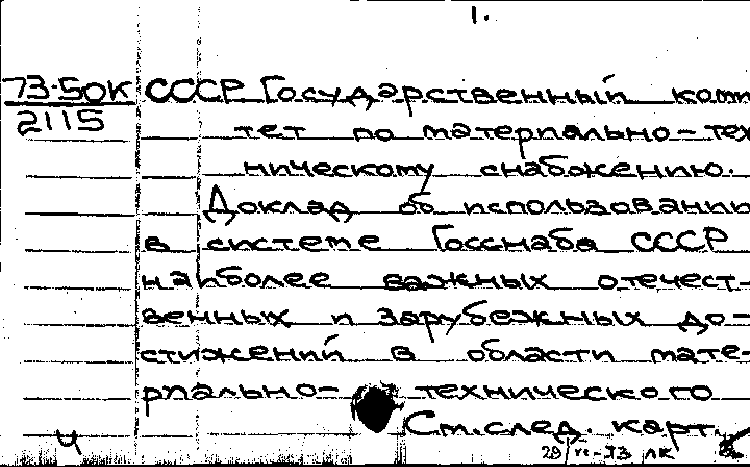 1.
73-50К СССР Государственный коми
2115 тет по материально-тех
ническому снабжению.
Доклад об использовании
в системе Госснаба СССР
наиболее важных отечест-
венных и зарубежных до-
стижений в области мате-
риально- технического
См. след. карт.
4